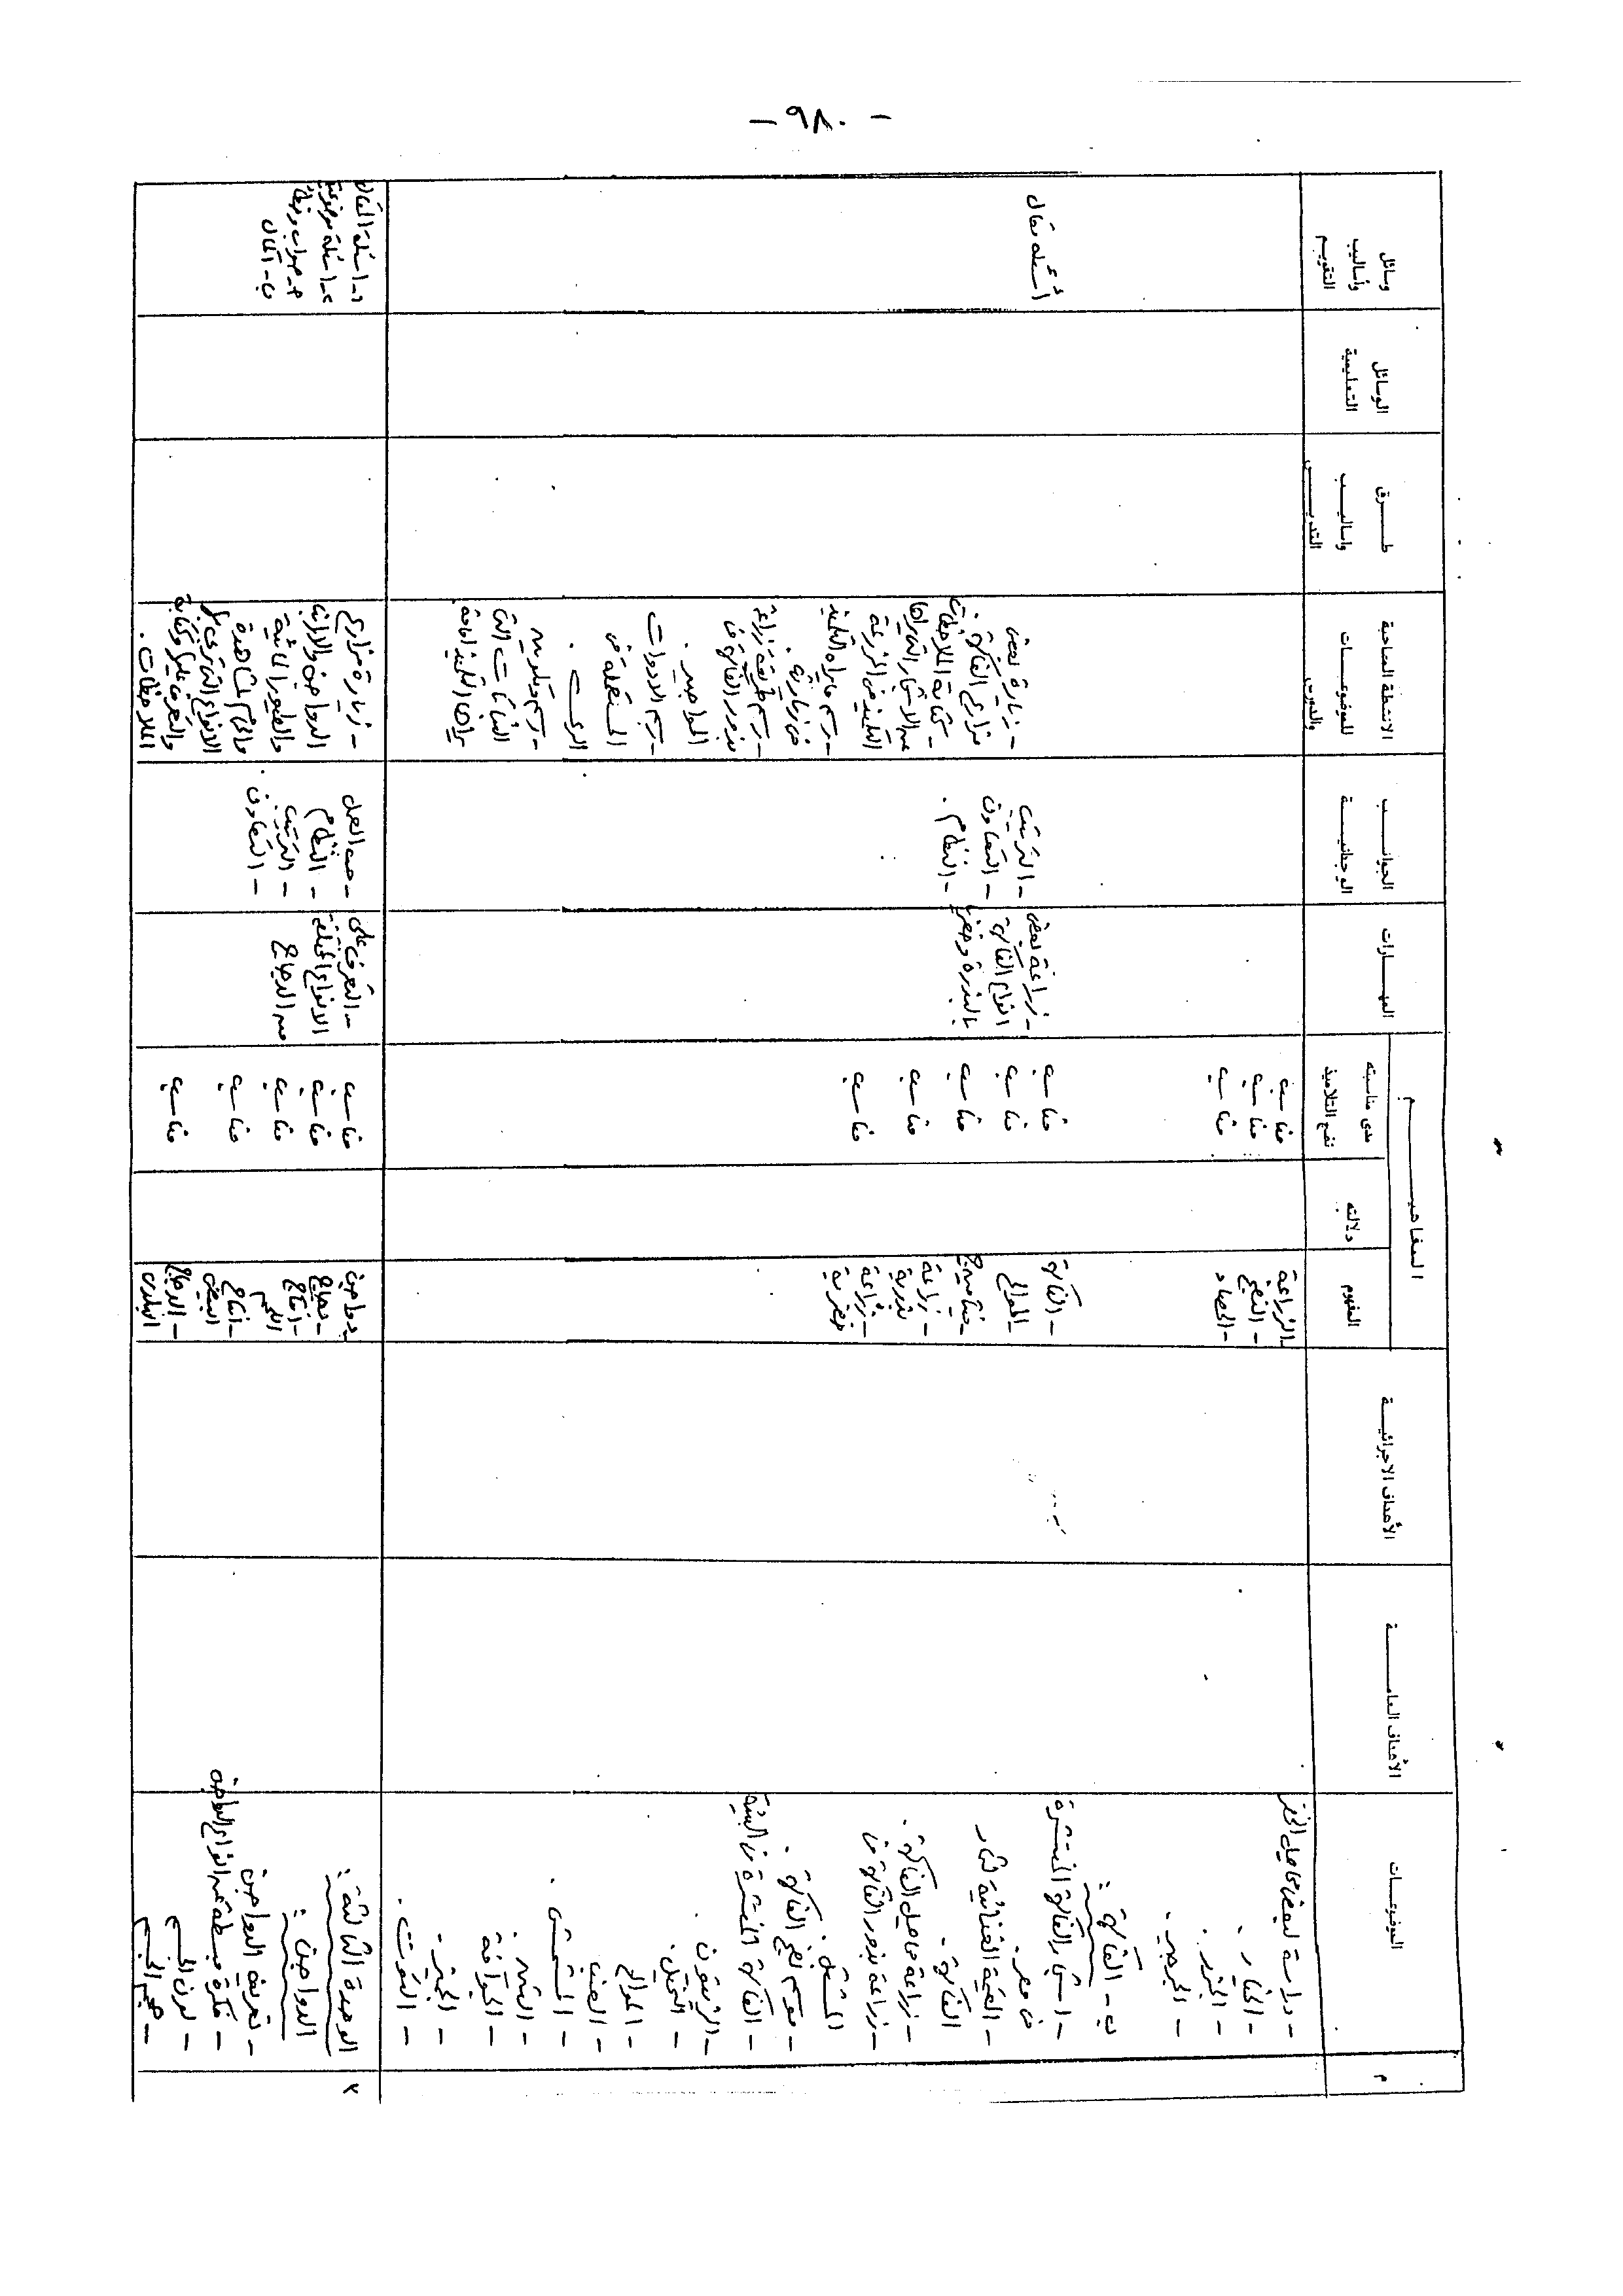 - ٩٨٠ -
م
الموضوعات
الأهداف العامة
الأهداف الاجرائية
المفاهيم
المفهوم
دلالته
مدى مناسبته
نضج التلاميذ
المهارات
الجوانب
الوجدانية
الانشطة المصاحبة
للموضوعات
طرق
واساليب
التدريس
الوسائل
التعليمية
وسائل
وأساليب
التقويم
- الخيار .
- الجزر .
- الجرجير .
ب - الفاكهة :
- اشجار الفاكهة المنتشرة
فى مصر .
- القيمة الغذائية لثمار
الفاكهة .
- زراعة محاصيل الفاكهة .
- زراعة بذور الفاكهة فى
المشتل .
- موسم نضج الفاكهة .
- الفاكهة المنتشرة فى البيئة
- الزيتون .
- النخيل .
- الموالح
- العنب
- المشمش .
- التين .
- الجوافة
- التوت .
- الزراعة
- النضج
- الحصاد
- الفاكهة
- الموالح
- زراعة
بذرية
- زراعة
خضرية
مناسب
مناسب
مناسب
مناسب
مناسب
مناسب
مناسب
مناسب
- زراعة بعض
انواع الفاكهة
بالبذرة وخضريا
- الترتيب
- التعاون
- النظام .
- زيارة لبعض
مزارع الفاكهة .
- كتابة الملاحظات
عن الاشجار التى يراها
التلميذ فى المزرعة
- رسم ما يراه التلميذ
فى زيارته .
- رسم طريقة زراعة
بذور الفاكهة فى
المواجير .
- رسم الادوات
المستعملة فى
- رسم وتلوين
النباتات التى
أسئلة مقال
٣
الوحدة الثالثة :
الدواجن :
- تعريف الدواجن
- فكرة مبسطة عن انواع الدواجن
- لون الجسم
- حجم الجسم
- دواجن
- دجاج
- انتاج
اللحم
- انتاج
البيض
- الدجاج
البلدى
مناسب
مناسب
مناسب
مناسب
مناسب
- التعرف على
الانواع المختلفة
من الدجاج
- حب العمل
- النظام
- الترتيب
- التعاون .
- زيارة مزارع
الدواجن والارانب
والطيور المائية
الملاحظات .